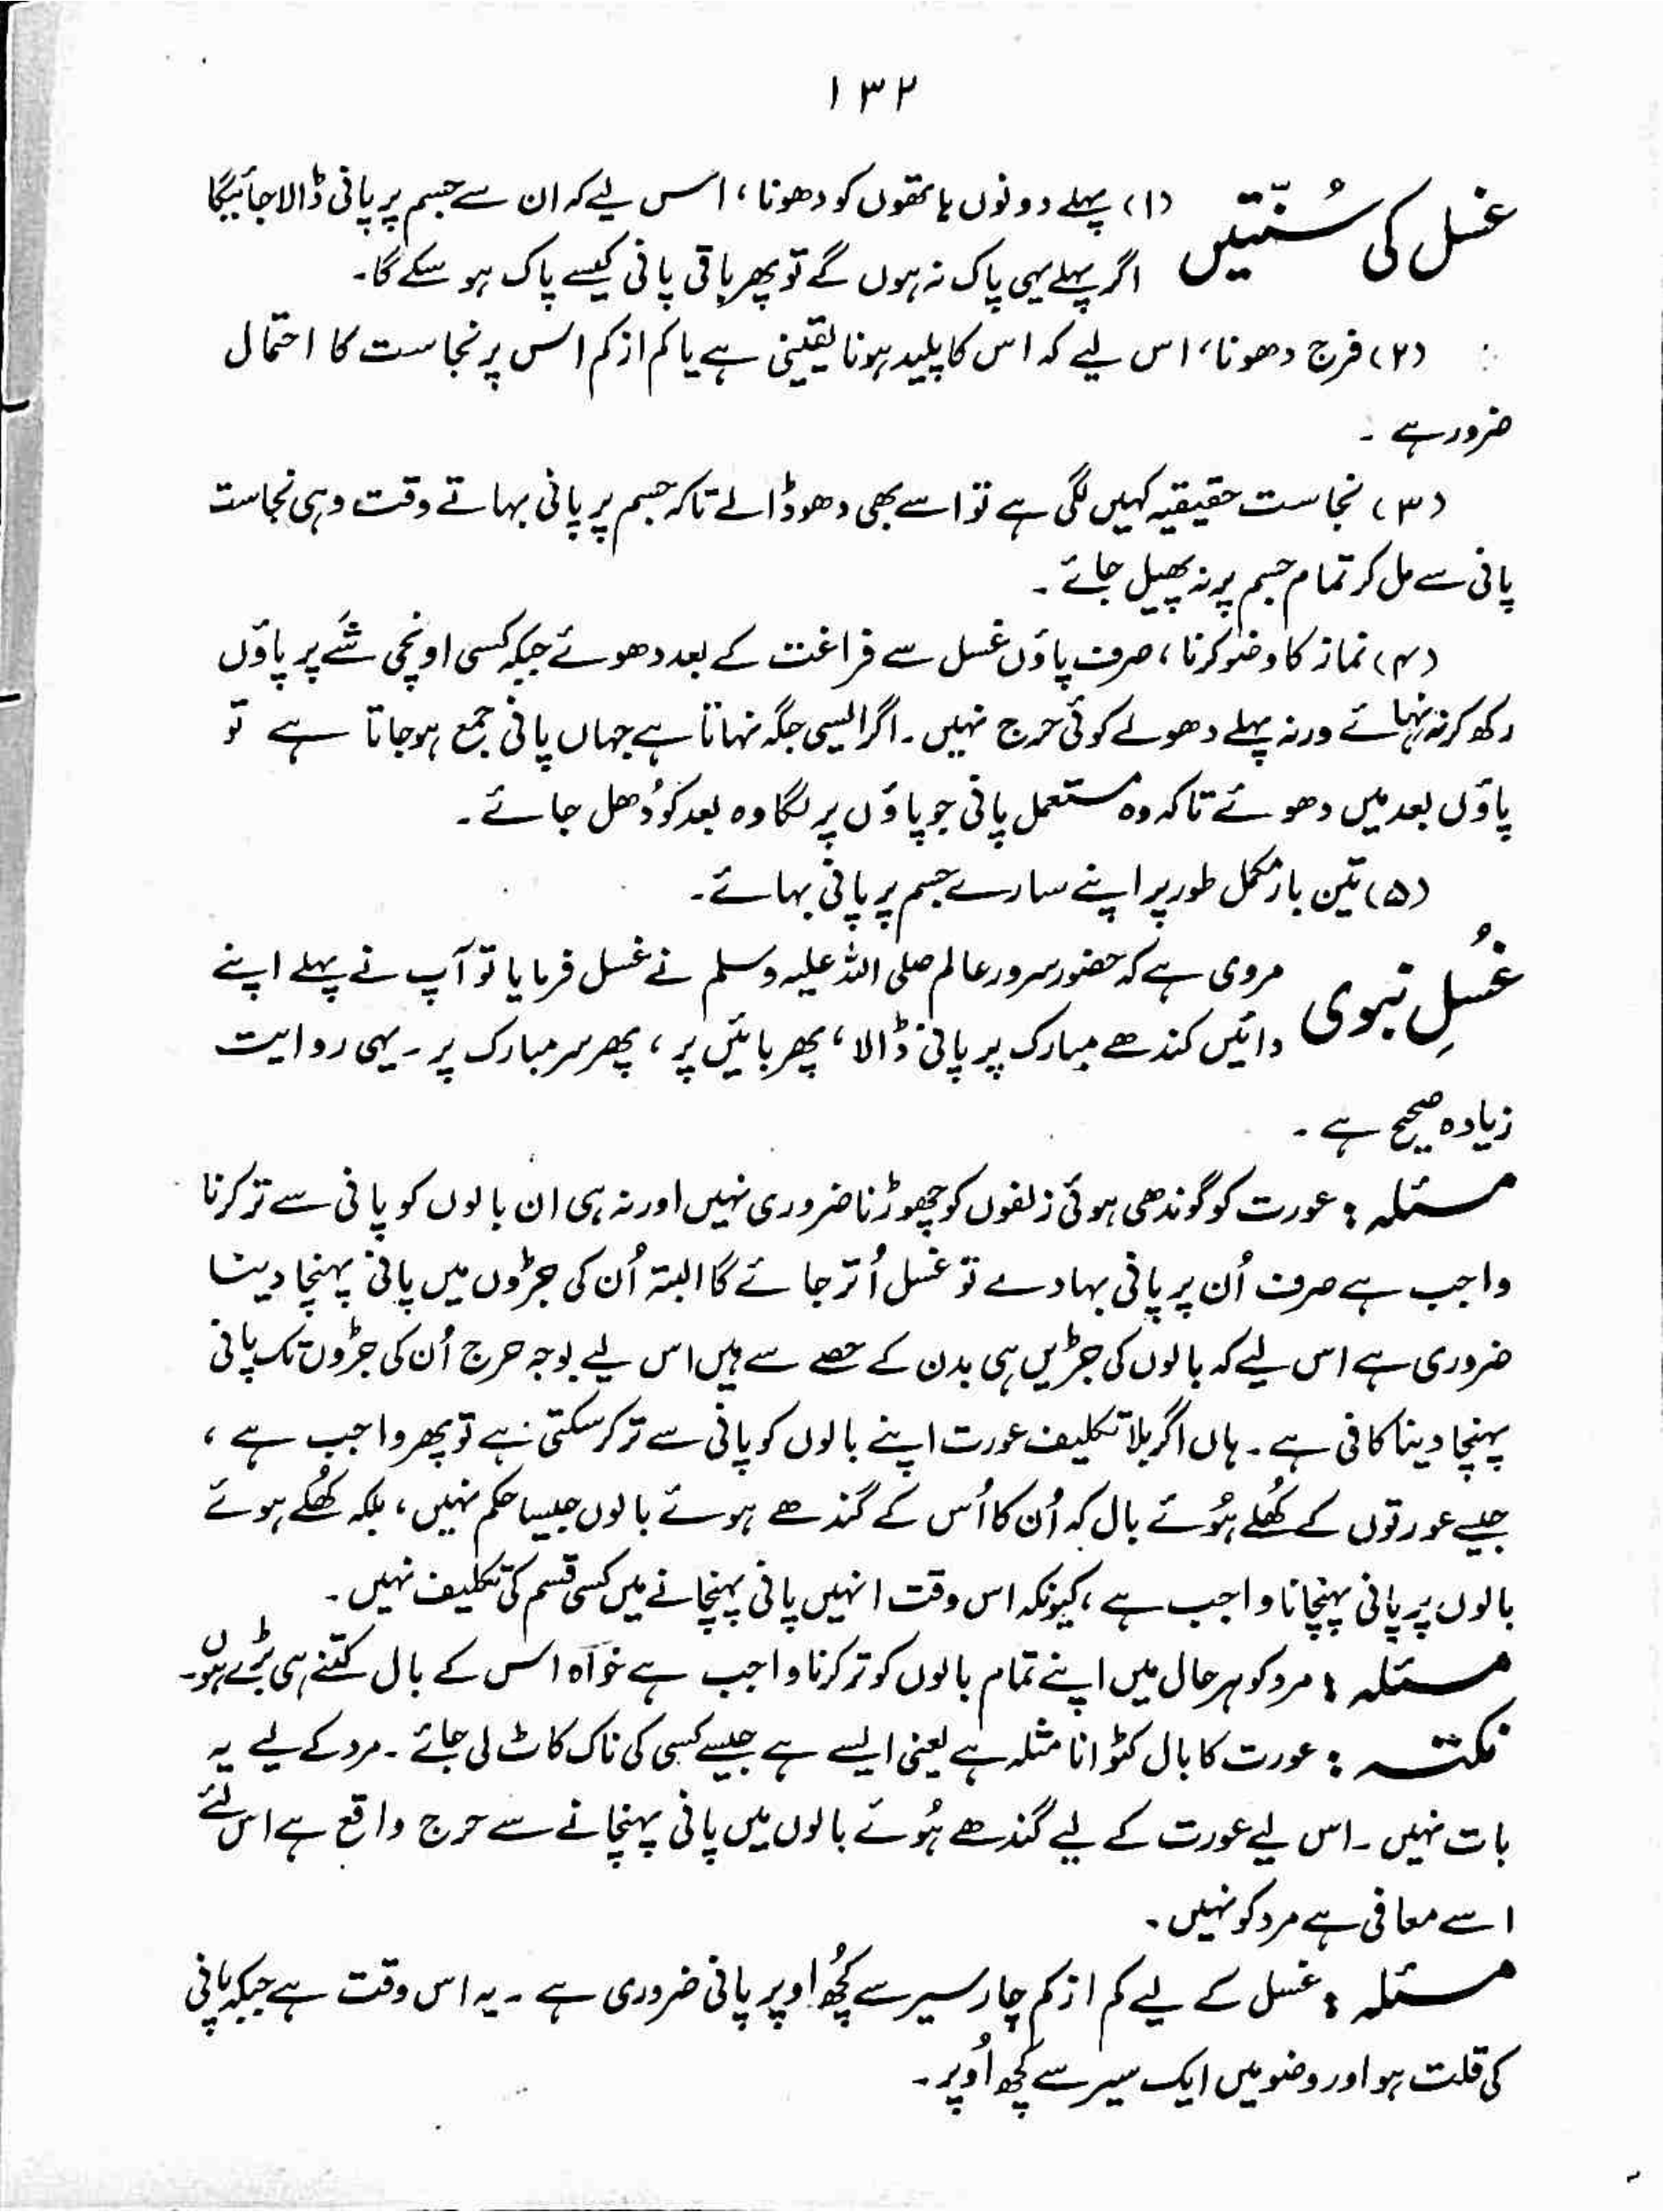 ۱۳۲
غسل کی سُنّتیں
(۱) پہلے دونوں ہاتھوں کو دھونا، اس لیے کہ ان سے جسم پر پانی ڈالا جائیگا
اگر پہلے یہی پاک نہ ہوں گے تو پھر باقی پانی کیسے پاک ہو سکے گا۔
(۲) فرج دھونا، اس لیے کہ اس کا پلید ہونا یقینی ہے یا کم از کم اس پر نجاست کا احتمال
ضرور ہے ۔
(۳) نجاست حقیقیہ کہیں لگی ہے تو اسے بھی دھو ڈالے تاکہ جسم پر پانی بہاتے وقت وہی نجاست
پانی سے مل کر تمام جسم پر نہ پھیل جائے ۔
(۴) نماز کا وضو کرنا، صرف پاؤں غسل سے فراغت کے بعد دھوئے جبکہ کسی اونچی شَے پر پاؤں
رکھ کر نہ نہائے ورنہ پہلے دھولے کوئی حرج نہیں ۔ اگر ایسی جگہ نہاتا ہے جہاں پانی جمع ہو جاتا ہے تو
پاؤں بعد میں دھوئے تاکہ وہ مستعمل پانی جو پاؤں پر لگا وہ بعد کو دُھل جائے ۔
(۵) تین بار مکمل طور پر اپنے سارے جسم پر پانی بہائے ۔
غُسلِ نبوی
مروی ہے کہ حضور سرور عالم صلی اللہ علیہ وسلم نے غسل فرمایا تو آپ نے پہلے اپنے
دائیں کندھے مبارک پر پانی ڈالا، پھر بائیں پر، پھر سر مبارک پر ۔ یہی روایت
زیادہ صحیح ہے ۔
مسئلہ : عورت کو گوندھی ہوئی زلفوں کو چھوڑنا ضروری نہیں اور نہ ہی ان بالوں کو پانی سے تر کرنا
واجب ہے صرف اُن پر پانی بہا دے تو غسل اُتر جائے گا البتہ اُن کی جڑوں میں پانی پہنچا دینا
ضروری ہے اس لیے کہ بالوں کی جڑیں ہی بدن کے حصے سے ہیں اس لیے بوجہ حرج اُن کی جڑوں تک پانی
پہنچا دینا کافی ہے ۔ ہاں اگر بلا تکلیف عورت اپنے بالوں کو پانی سے تر کر سکتی ہے تو پھر واجب ہے ،
جیسے عورتوں کے کُھلے ہُوئے بال کہ اُن کا اُس کے گندھے ہوئے بالوں جیسا حکم نہیں، بلکہ کُھلے ہوئے
بالوں پر پانی پہنچانا واجب ہے، کیونکہ اس وقت انہیں پانی پہنچانے میں کسی قسم کی تکلیف نہیں ۔
مسئلہ : مرد کو ہر حال میں اپنے تمام بالوں کو تر کرنا واجب ہے خواہ اس کے بال کتنے ہی بڑے ہوں ۔
نکتہ : عورت کا بال کٹوانا مثلہ ہے یعنی ایسے ہے جیسے کسی کی ناک کاٹ لی جائے ۔ مرد کے لیے یہ
بات نہیں ۔ اس لیے عورت کے لیے گندھے ہُوئے بالوں میں پانی پہنچانے سے حرج واقع ہے اس لئے
اسے معافی ہے مرد کو نہیں ۔
مسئلہ : غسل کے لیے کم از کم چار سیر سے کُچھ اوپر پانی ضروری ہے ۔ یہ اس وقت ہے جبکہ پانی
کی قلت ہو اور وضو میں ایک سیر سے کُچھ اُوپر ۔